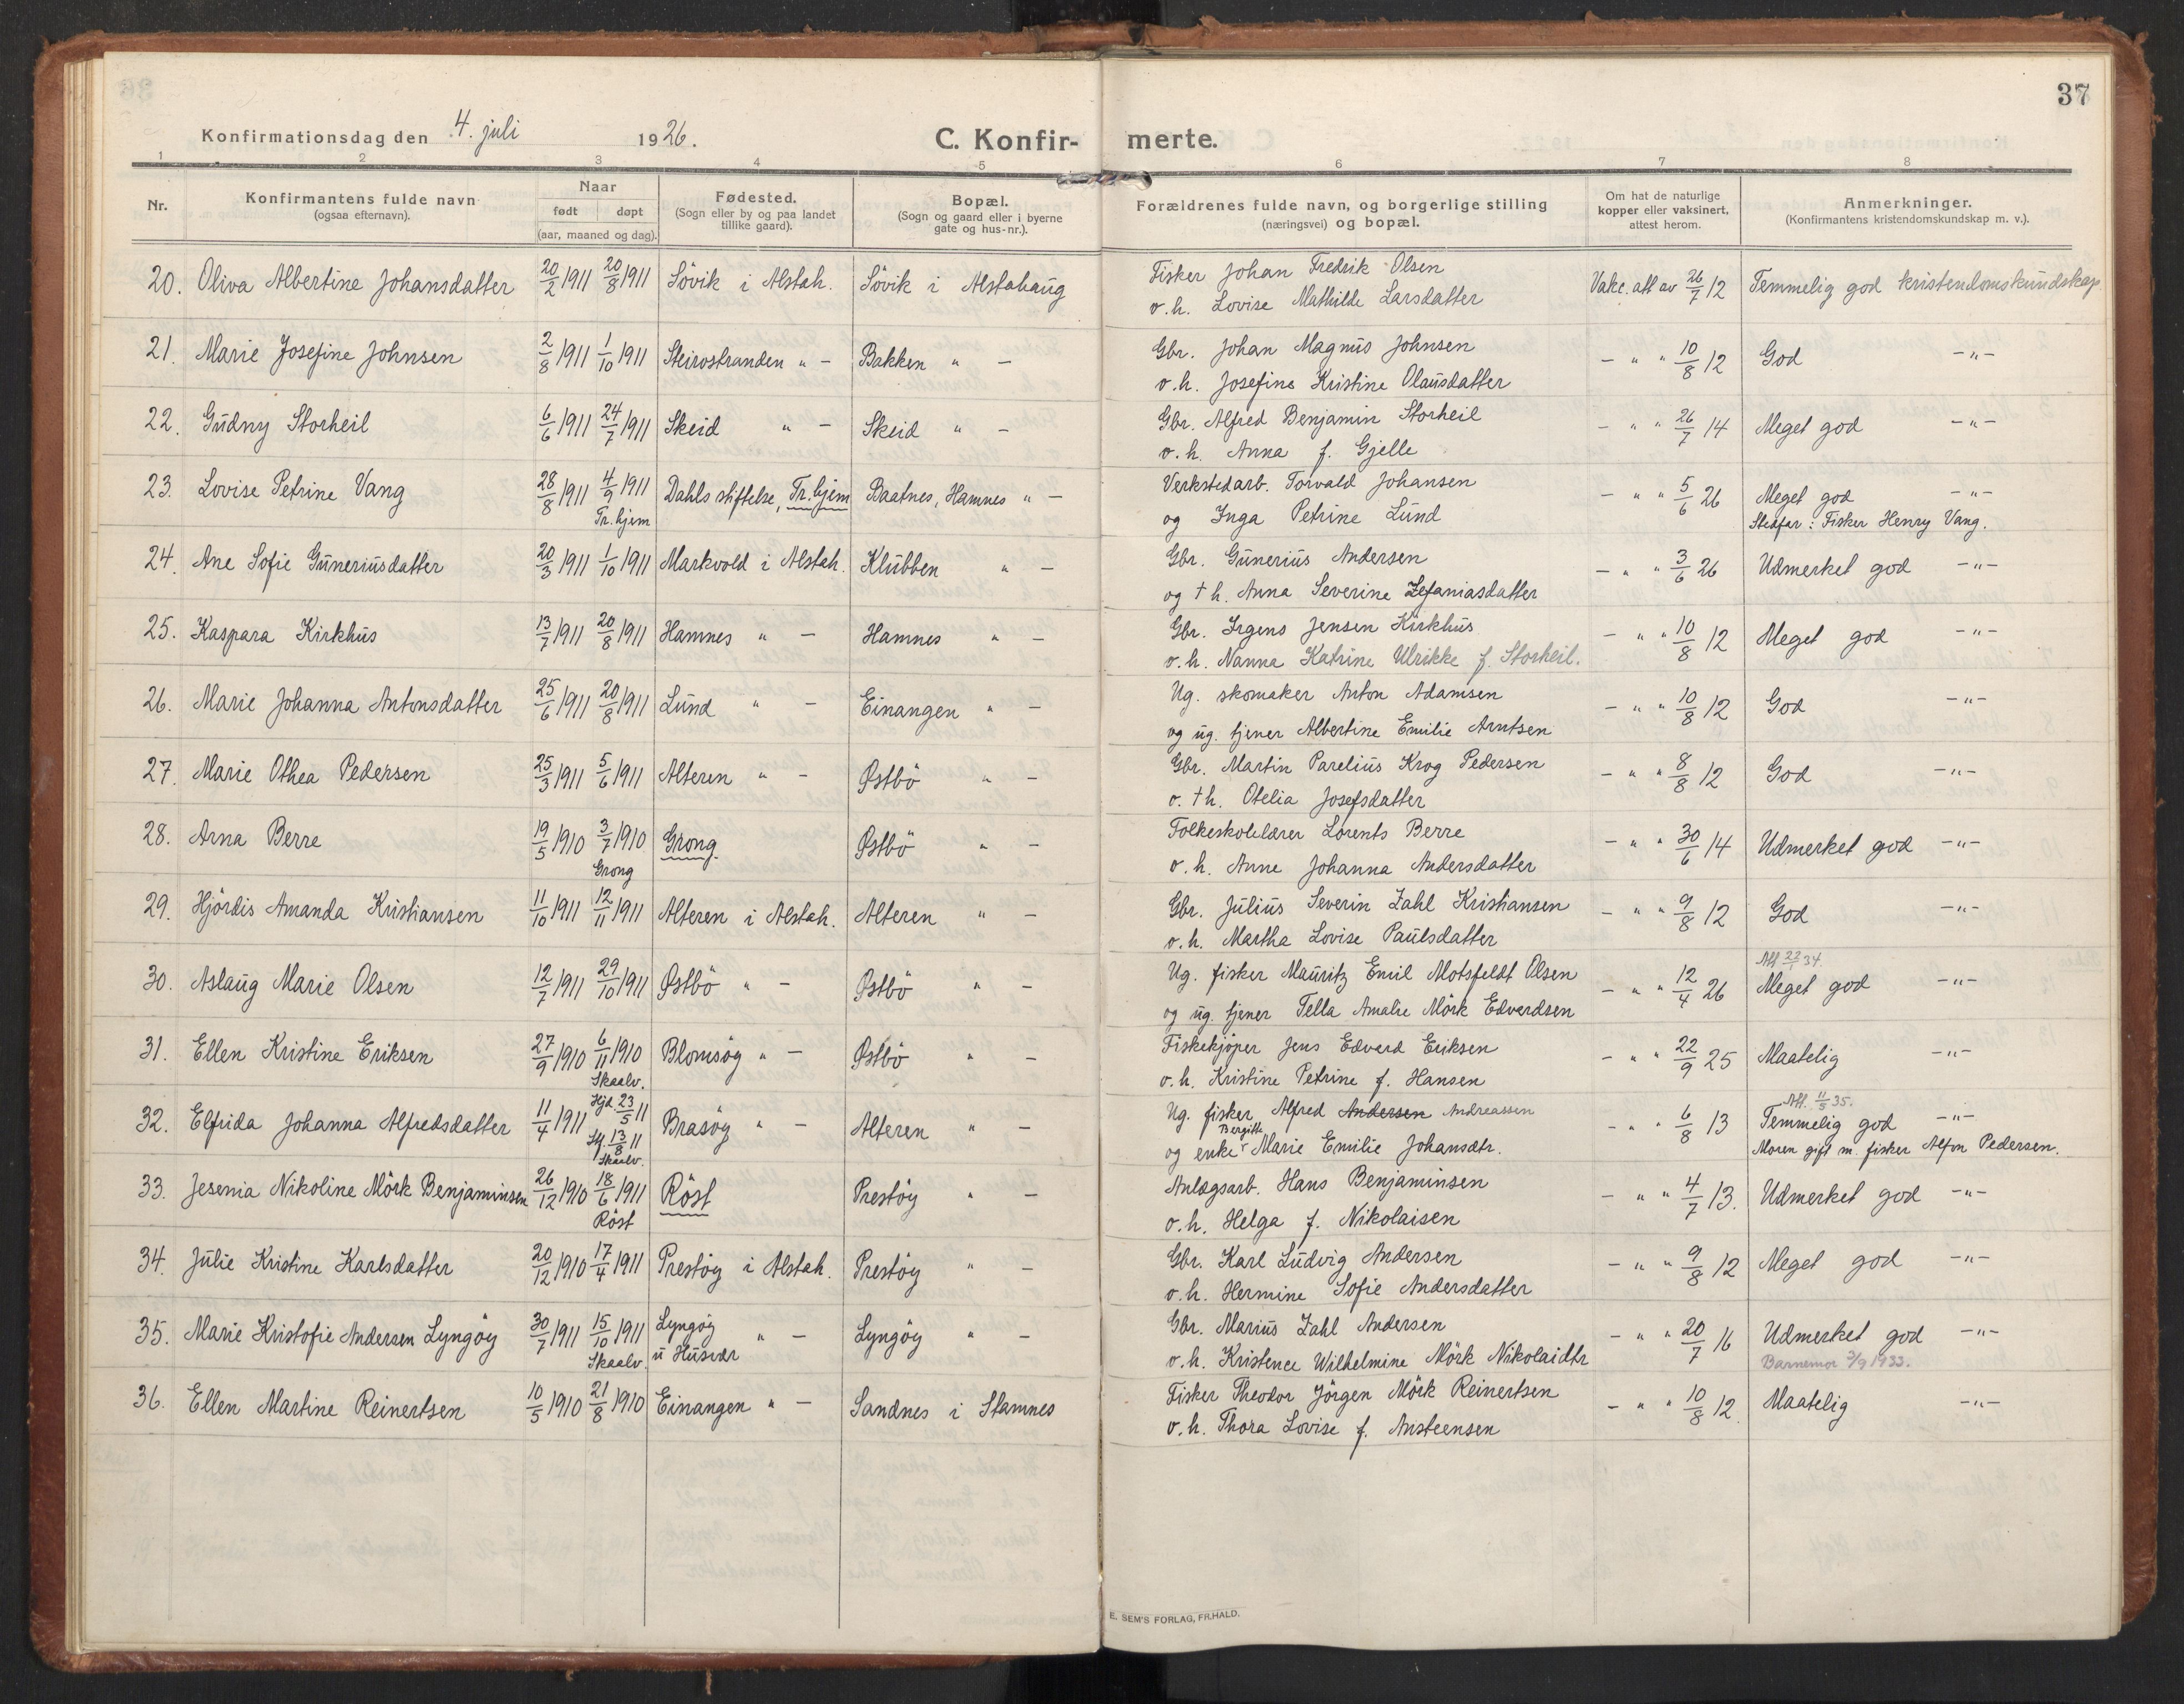 37
Konfirmationsdag den 4. juli 1926. C. Konfir- merte.
1 2 3 4 5 6 7 8
Nr. Konfirmantens fulde navn (ogsaa efternavn). Naar født døpt (aar, maaned og dag). Fødested. (Sogn eller by og paa landet tillike gaard). Bopæl. (Sogn og gaard eller i byerne gate og hus-nr.). Forældrenes fulde navn, og borgerlige stilling (næringsvei) og bopæl. Om hat de naturlige kopper eller vaksinert, attest herom. Anmerkninger. (Konfirmantens kristendomskundskap m. v.).
20. Oliva Albertine Johansdatter 20/2 1911 20/8 1911 Sövik i Alstah. Sövik i Alstahaug Fisker Johan Fredrik Olsen Vakc. att av 26/7 12 Temmelig god kristendomskundskap
o. h. Lovise Mathilde Larsdatter
21. Marie Josefine Johnsen 2/8 1911 1/10 1911 Steirostranden " - Bakken " - Gbr. Johan Magnus Johnsen - " " 10/8 12 God -"-
o. h. Josefine Kristine Olausdatter
22. Gudny Storheil 6/6 1911 24/7 1911 Skeid " - Skeid " - Gbr. Alfred Benjamin Storheil - " " 26/7 14 Meget god -"-
o. h. Anna f. Gjelle
23. Lovise Petrine Vang 28/8 1911 4/9 1911 Tr.hjem Dahls stiftelse, Tr.hjem Baatnes, Hamnes " - Verkstedarb. Torvald Johansen - " " 5/6 26 Meget god -"-
og Inga Petrine Lund Stedfar: Fisker Henry Vang.
24. Ane Sofie Guneriusdatter 20/3 1911 1/10 1911 Markvold i Alstah. Klubben " - Gbr. Gunerius Andersen - " " 3/6 26 Udmerket god -"-
og † h. Anna Severine Zefaniasdatter
25. Kaspara Kirkhus 13/7 1911 20/8 1911 Hamnes " - Hamnes " - Gbr. Irgens Jensen Kirkhus - " " 10/8 12 Meget god -"-
o. h. Nanna Katrine Ulrikke f. Storheil.
26. Marie Johanna Antonsdatter 25/6 1911 20/8 1911 Lund " - Einangen " - Ug. skomaker Anton Adamsen - " " 10/8 12 God -"-
og ug. tjener Albertine Emilie Arntsen
27. Marie Othea Pedersen 25/3 1911 5/6 1911 Alteren " - Østbö " - Gbr. Martin Parelius Krog Pedersen - " " 8/8 12 God -"-
o. † h. Otelia Josefsdatter
28. Arna Berre 19/5 1910 3/7 1910 Grong Grong Østbö " - Folkeskolelærer Lorents Berre - " " 30/6 14 Udmerket god -"-
o. h. Anne Johanna Andersdatter
29. Hjördis Amanda Kristiansen 11/10 1911 12/11 1911 Alteren i Alstah. Alteren " - Gbr. Julius Severin Zahl Kristiansen - " " 9/8 12 God -"-
o. h. Martha Lovise Paulsdatter
30. Aslaug Marie Olsen 12/7 1911 29/10 1911 Østbö " - Østbö " - Ug. fisker Mauritz Emil Motsfeldt Olsen - " " 12/4 26 Meget god -"-
og ug. tjener Tella Amalie Mörk Edvardsen
31. Ellen Kristine Eriksen 27/9 1910 6/11 1910 Skaalv. Blomsöy " - Østbö " - Fiskekjöper Jens Edvard Eriksen - " " 22/9 25 Maatelig -"-
o. h. Kristine Petrine f. Hansen
32. Elfrida Johanna Alfredsdatter 11/4 1911 Hjd 23/5 11 13/8 11 Skaalv. Brasöy " - Alteren " - Ug. fisker Alfred Andersen Andreassen - " " 6/8 13 Att. 11/5 35. Temmelig god -"-
og enke Bergitte Marie Emilie Johansdtr. Moren gift m. fisker Alfon Pedersen.
33. Jesenia Nikoline Mörk Benjaminsen 26/12 1910 18/6 1911 Röst Röst Prestöy " - Anlægsarb. Hans Benjaminsen - " " 4/7 13. Udmerket god -"-
o. h. Helga f. Nikolaisen
34. Julie Kristine Karlsdatter 20/12 1910 17/4 1911 Prestöy i Alstah. Prestöy " - Gbr. Karl Ludvig Andersen - " " 9/8 12 Meget god -"-
o. h. Hermine Sofie Andersdatter
35. Marie Kristofie Andersen Lyngöy 30/7 1911 15/10 1911 Skaalv. Lyngöy u Husvær " - Lyngöy " - Gbr. Marius Zahl Andersen - " " 20/7 16 Udmerket god -"-
o. h. Kristence Wilhelmine Mörk Nikolaidtr Barnemor 3/9 1933.
36. Ellen Martine Reinertsen 10/5 1910 21/8 1910 Einangen " - Sandnes i Stamnes Fisker Theodor Jörgen Mörk Reinertsen - " " 10/8 12. Maatelig -"-
o. h. Thora Lovise f. Ansteensen
E. SEM'S FORLAG, FR.HALD.